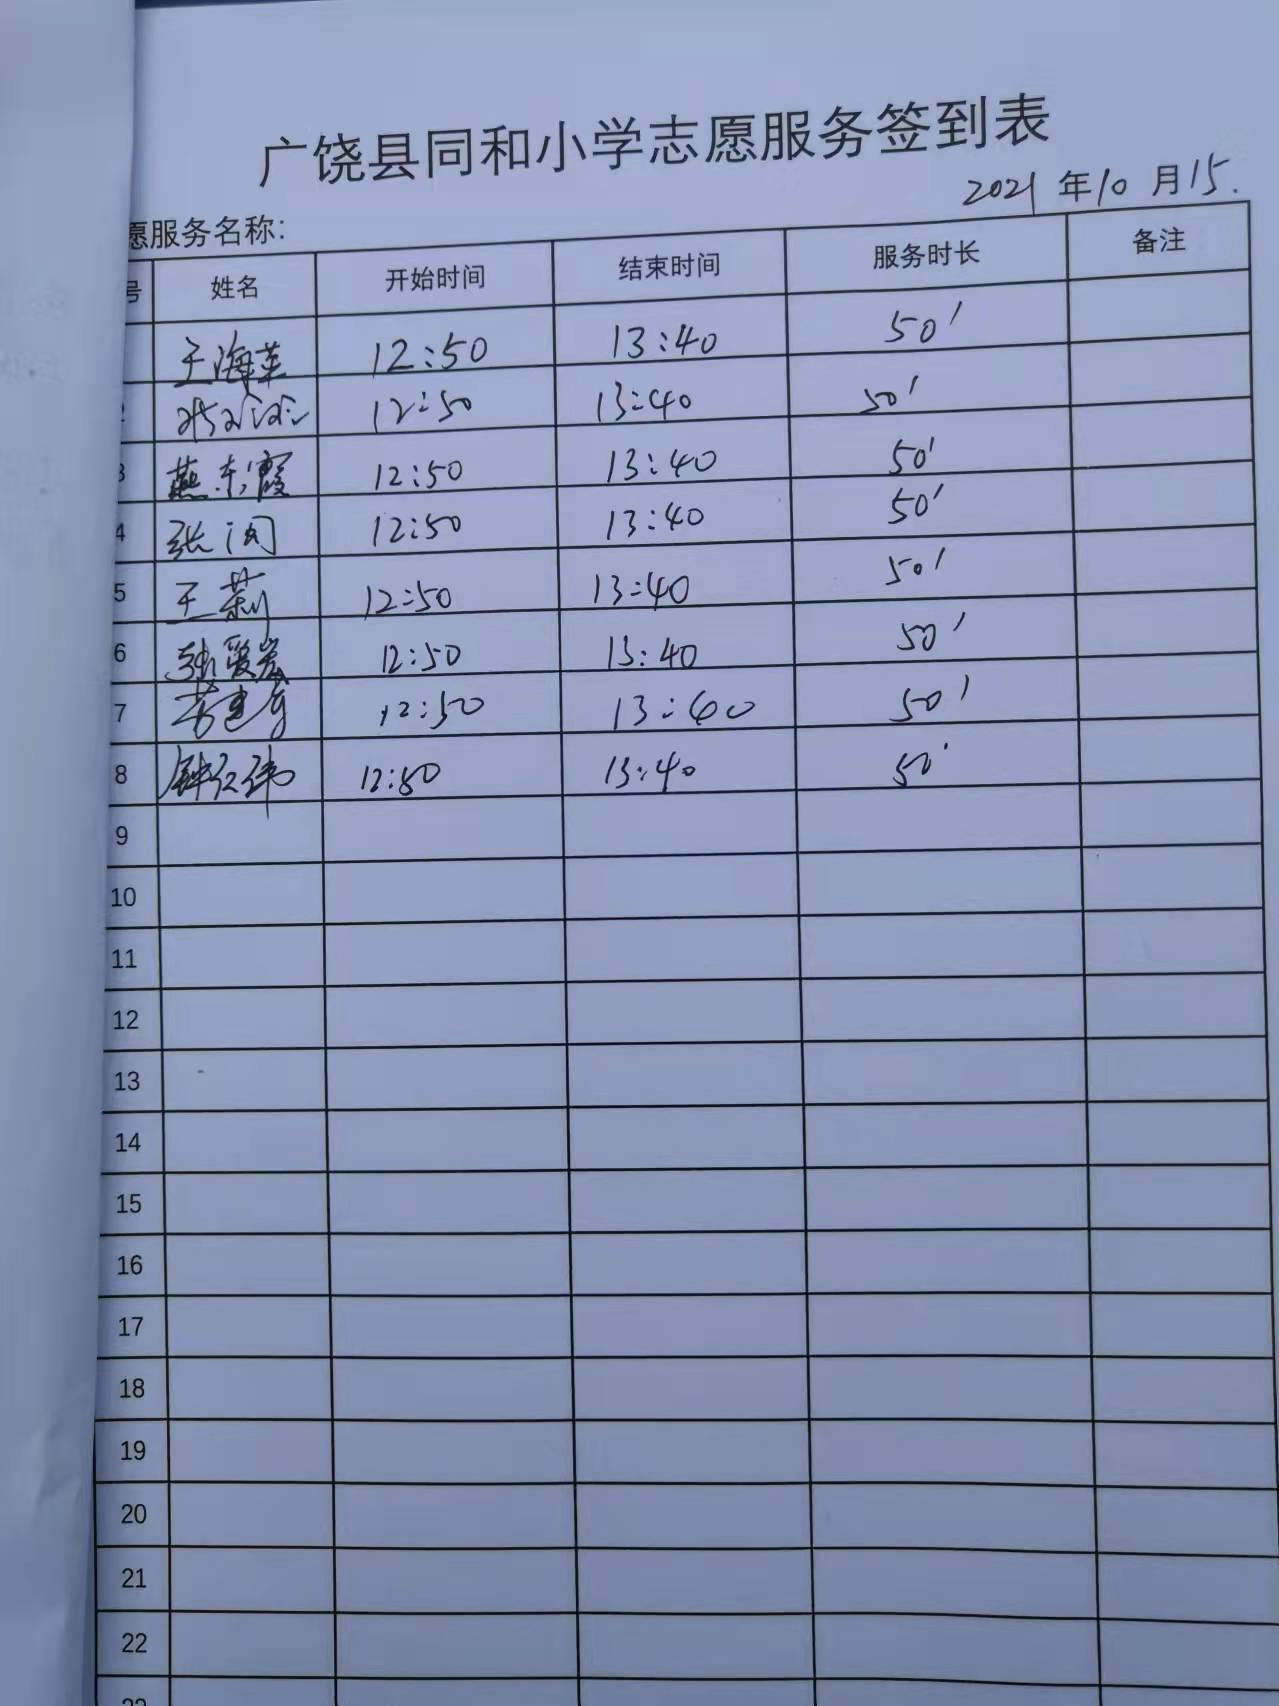 广饶县同和小学志愿服务签到表
2021 年 10 月 15.
愿服务名称:
号 姓名 开始时间 结束时间 服务时长 备注
王海苹 12:50 13:40 50′
12:50 13:40 50′
3 燕东霞 12:50 13:40 50′
4 张闪 12:50 13:40 50′
5 王莉 12:50 13:40 50′
6 12:50 13:40 50′
7 12:50 13:40 50′
8 钟红伟 12:50 13:40 50′
9
10
11
12
13
14
15
16
17
18
19
20
21
22